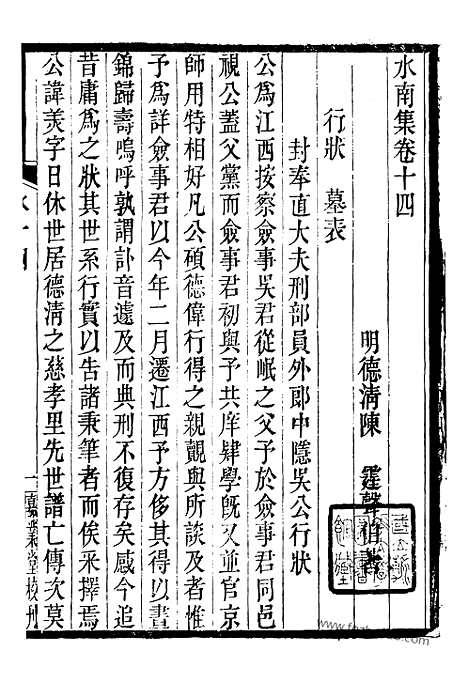 水南集卷十四
明德清陳　霆聲伯著
行狀　墓表
封奉直大夫刑部員外郎中隱吳公行狀
公為江西按察僉事吳君從岷之父予於僉事君同邑
視公蓋父黨而僉事君初與予共庠肄學旣又並官京
師用特相好凡公碩德偉行得之親覿與所談及者惟
予為詳僉事君以今年二月遷江西予方侈其行以晝
錦歸壽嗚呼孰謂訃音遽及而典刑不復存矣感今追
昔庸為之狀其世系行實以告諸秉筆者而俟采擇焉
公諱羙字日休世居德清之慈孝里先世譜亡傳次莫
水十四
一
校刋